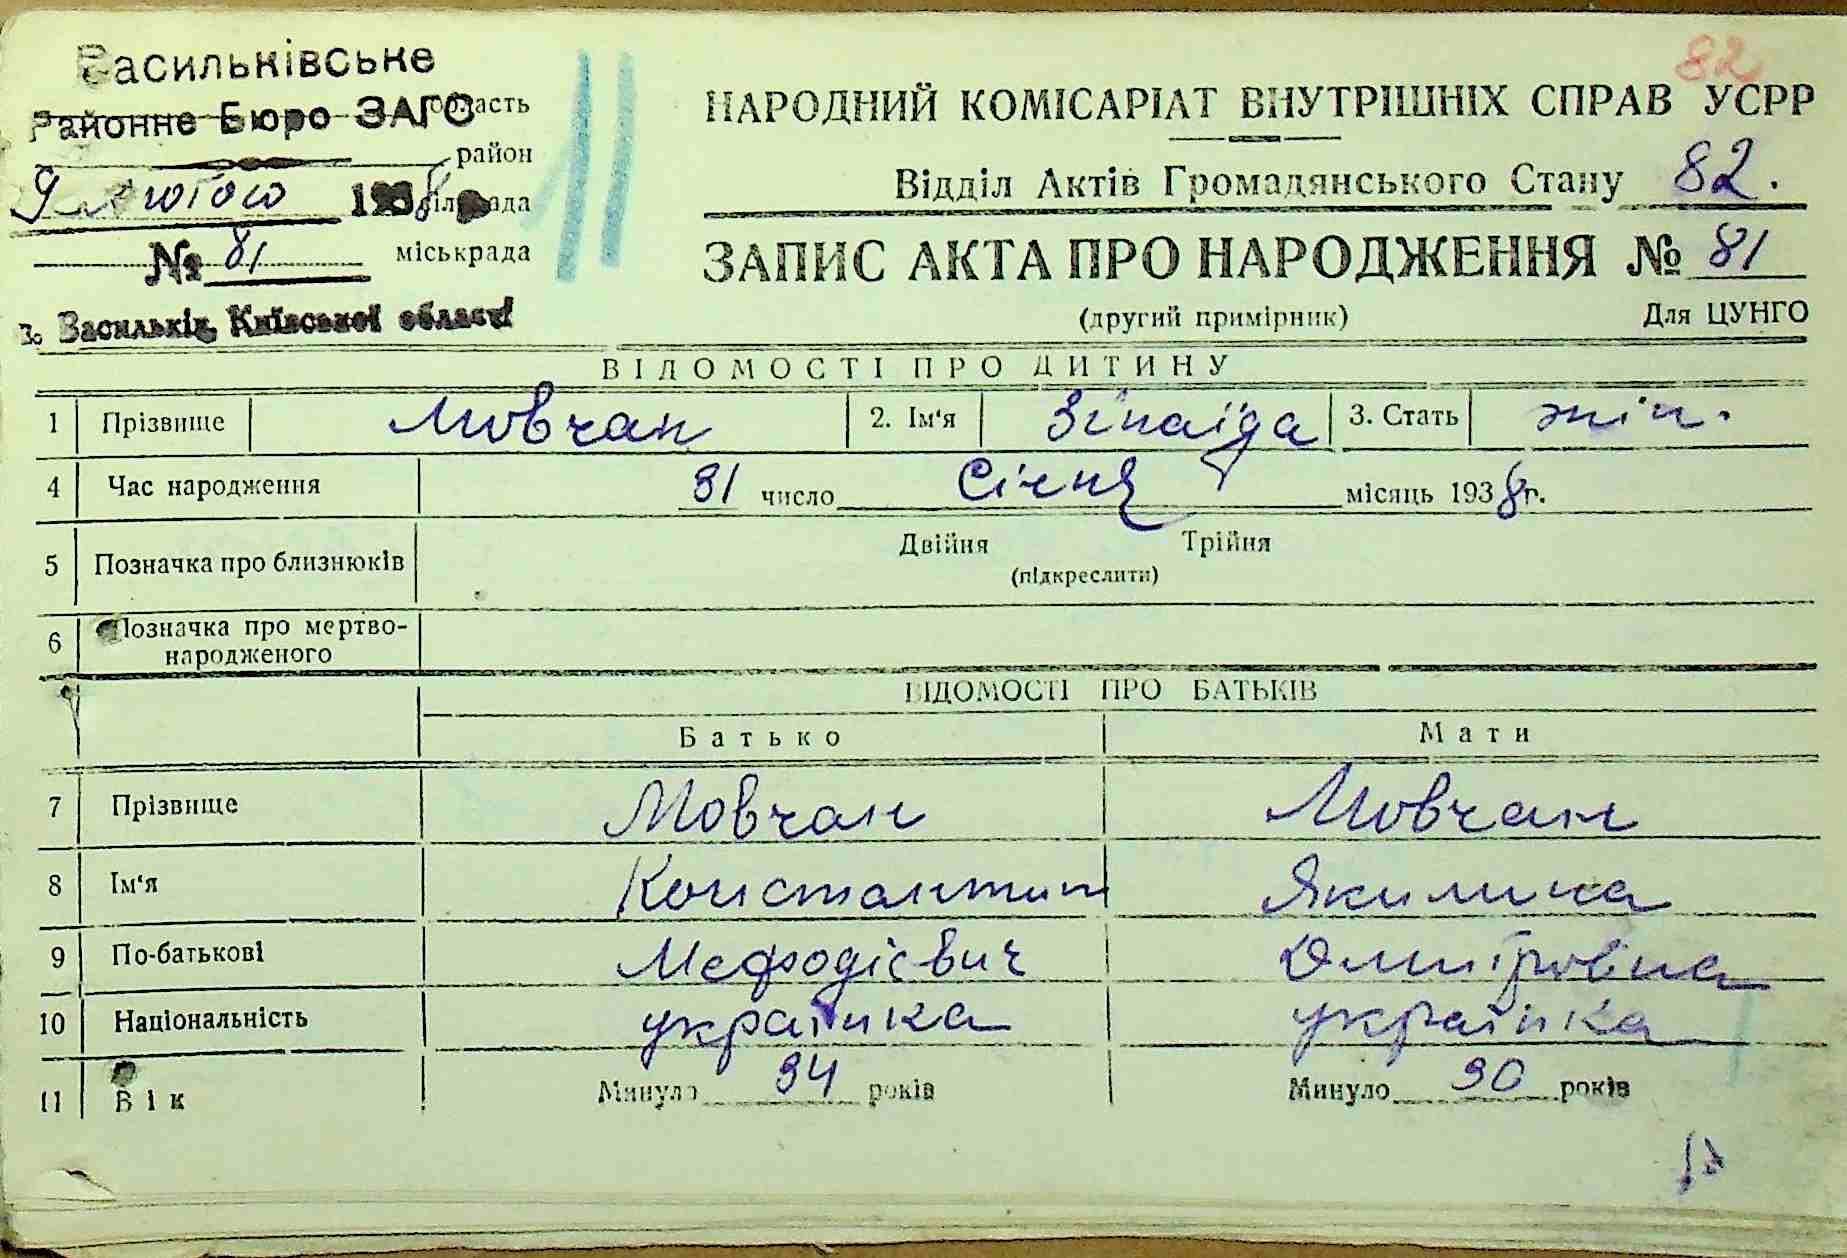 82
Васильківське
Районне Бюро ЗАГС область
район
9 лютого 1938 сільрада
№ 81 міськрада
м. Васильків, Київської області
НАРОДНИЙ КОМІСАРІАТ ВНУТРІШНІХ СПРАВ УСРР
Відділ Актів Громадянського Стану 82.
ЗАПИС АКТА ПРО НАРОДЖЕННЯ № 81
(другий примірник) Для ЦУНГО
ВІДОМОСТІ ПРО ДИТИНУ
1 Прізвище Мовчан 2. Ім'я Зінаїда 3. Стать жін.
4 Час народження 31 число Січня місяць 1938 р.
5 Позначка про близнюків Двійня Трійня
(підкреслити)
6 Позначка про мертво-
народженого
ВІДОМОСТІ ПРО БАТЬКІВ
Батько Мати
7 Прізвище Мовчан Мовчан
8 Ім'я Константин Якилина
9 По-батькові Мефодієвич Дмитровна
10 Національність українка українка
11 Вік Минуло 34 років Минуло 30 років